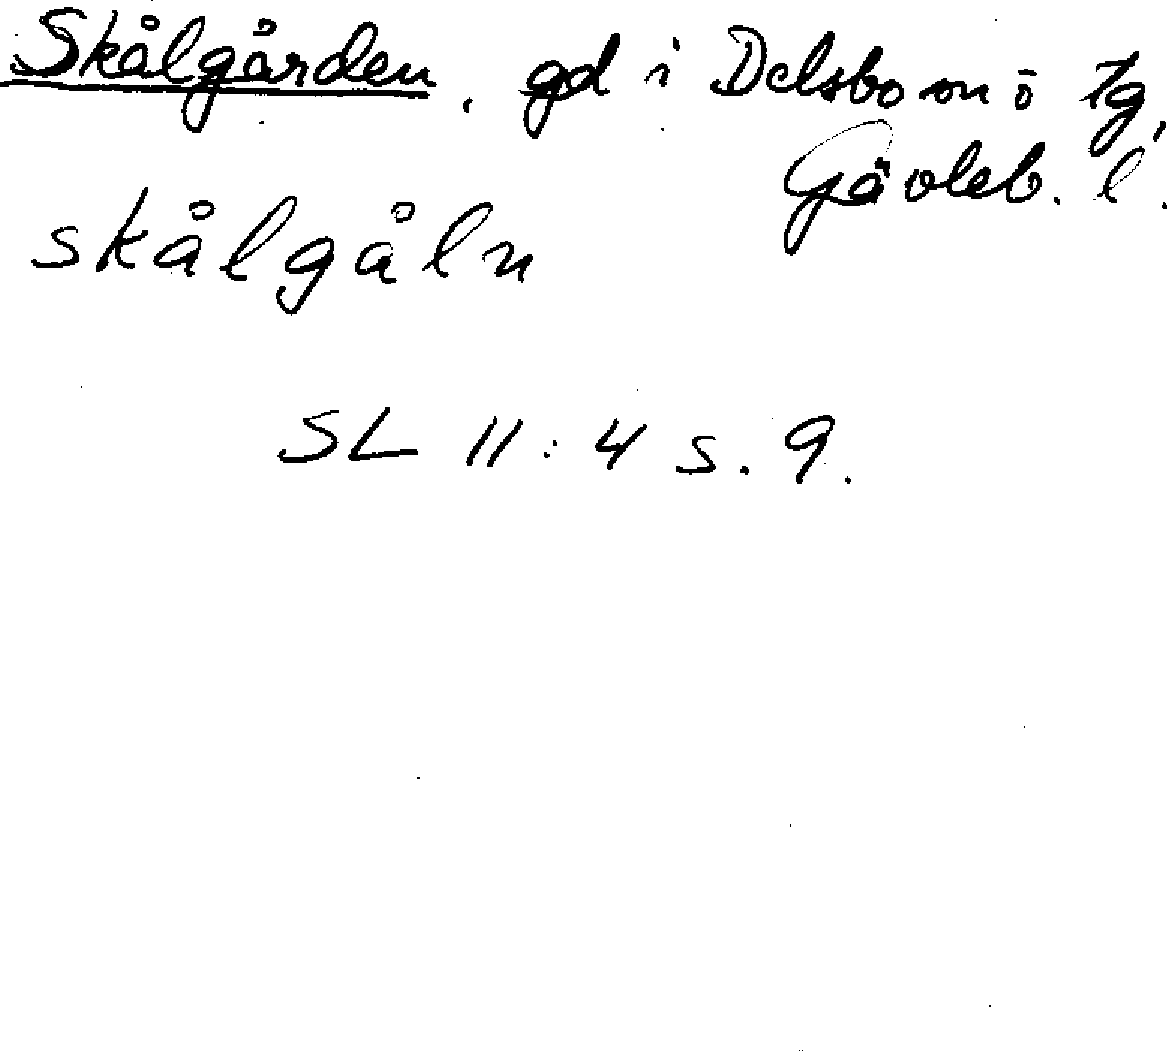 Skålgården, gd i Delsbo sn o tg,
Gävleb. l.
skålgåln
SL 11:4 s. 9.